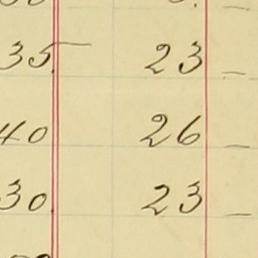 35 23 —
40 26 —
30 23 —